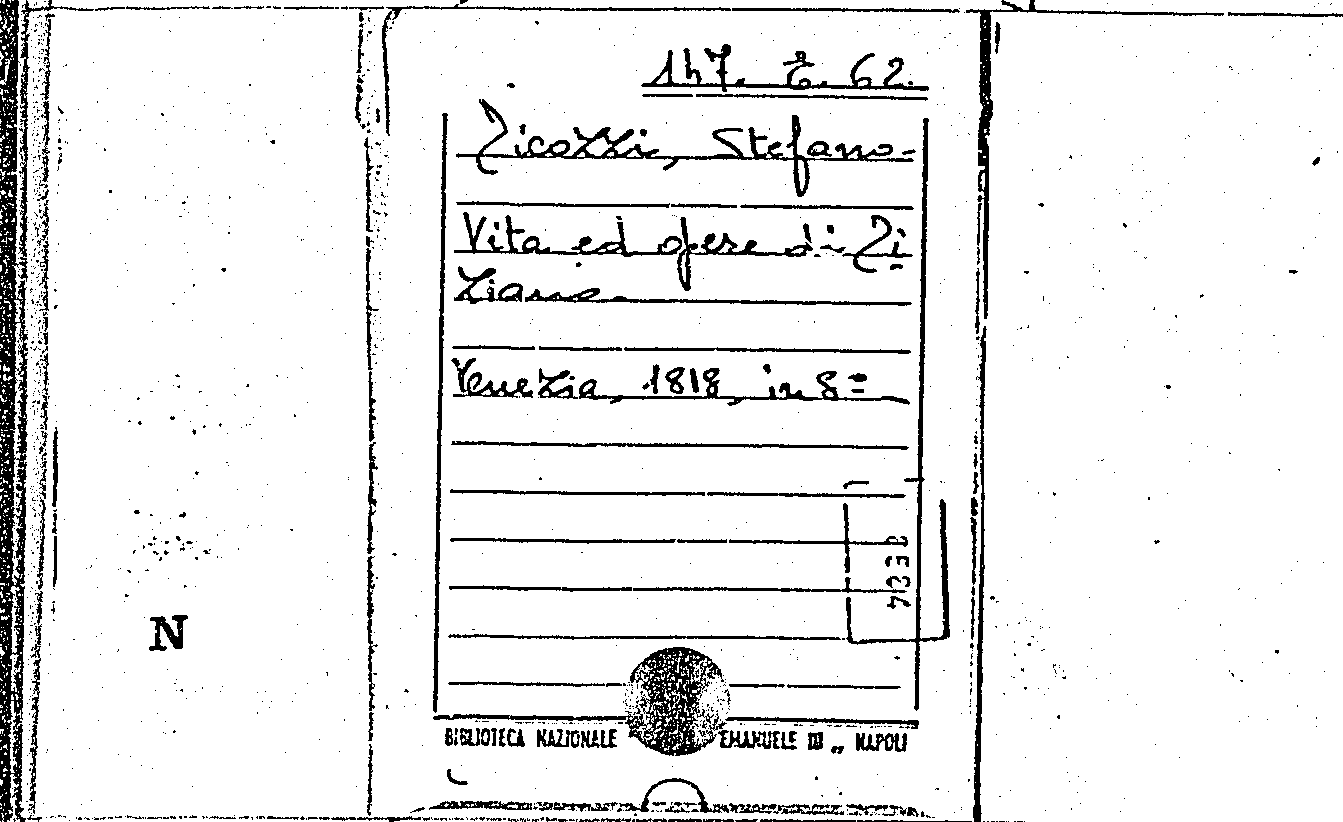 147. E. 62.
Ticozzi, Stefano-
Vita ed opere di Ti
ziano-
Venezia, 1818, in 8=
N
BIBLIOTECA NAZIONALE EMANUELE III „ NAPOLI